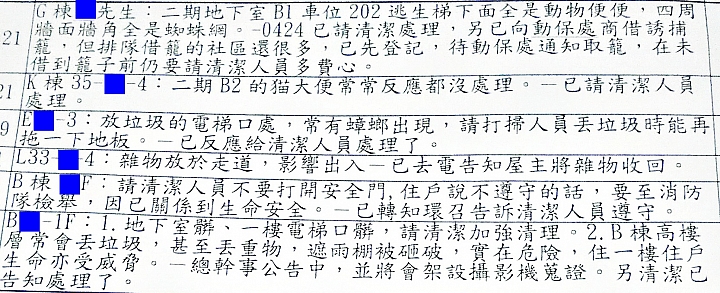 G棟 先生：二期地下室B1車位202逃生梯下面全是動物便便，四周
21 牆面牆角全是蜘蛛網。-0424已請清潔處理，另已向動保處商借誘捕
籠，但排隊借籠的社區還很多，已先登記，待動保處通知取籠，在未
借到籠子前仍要請清潔人員多費心。
21 K棟35- -4：二期B2的猫大便常常反應都沒處理。—已請清潔人員
處理。
9 E -3：放垃圾的電梯口處，常有蟑螂出現，請打掃人員丟垃圾時能再
拖一下地板。—已反應給清潔人員處理了。
L33- -4：雜物放於走道，影響出入—已去電告知屋主將雜物收回。
B棟 F：請清潔人員不要打開安全門,住戶說不遵守的話，要至消防
隊檢舉，因已關係到生命安全。—已轉知環召告訴清潔人員遵守。
B -1F：1.地下室髒、一樓電梯口髒，請清潔加強清理。2.B棟高樓
層常會丟垃圾，甚至丟重物，遮雨棚被砸破，實在危險，住一樓住戶
生命亦受威脅。—總幹事公告中，並將會架設攝影機蒐證。另清潔已
告知處理了。